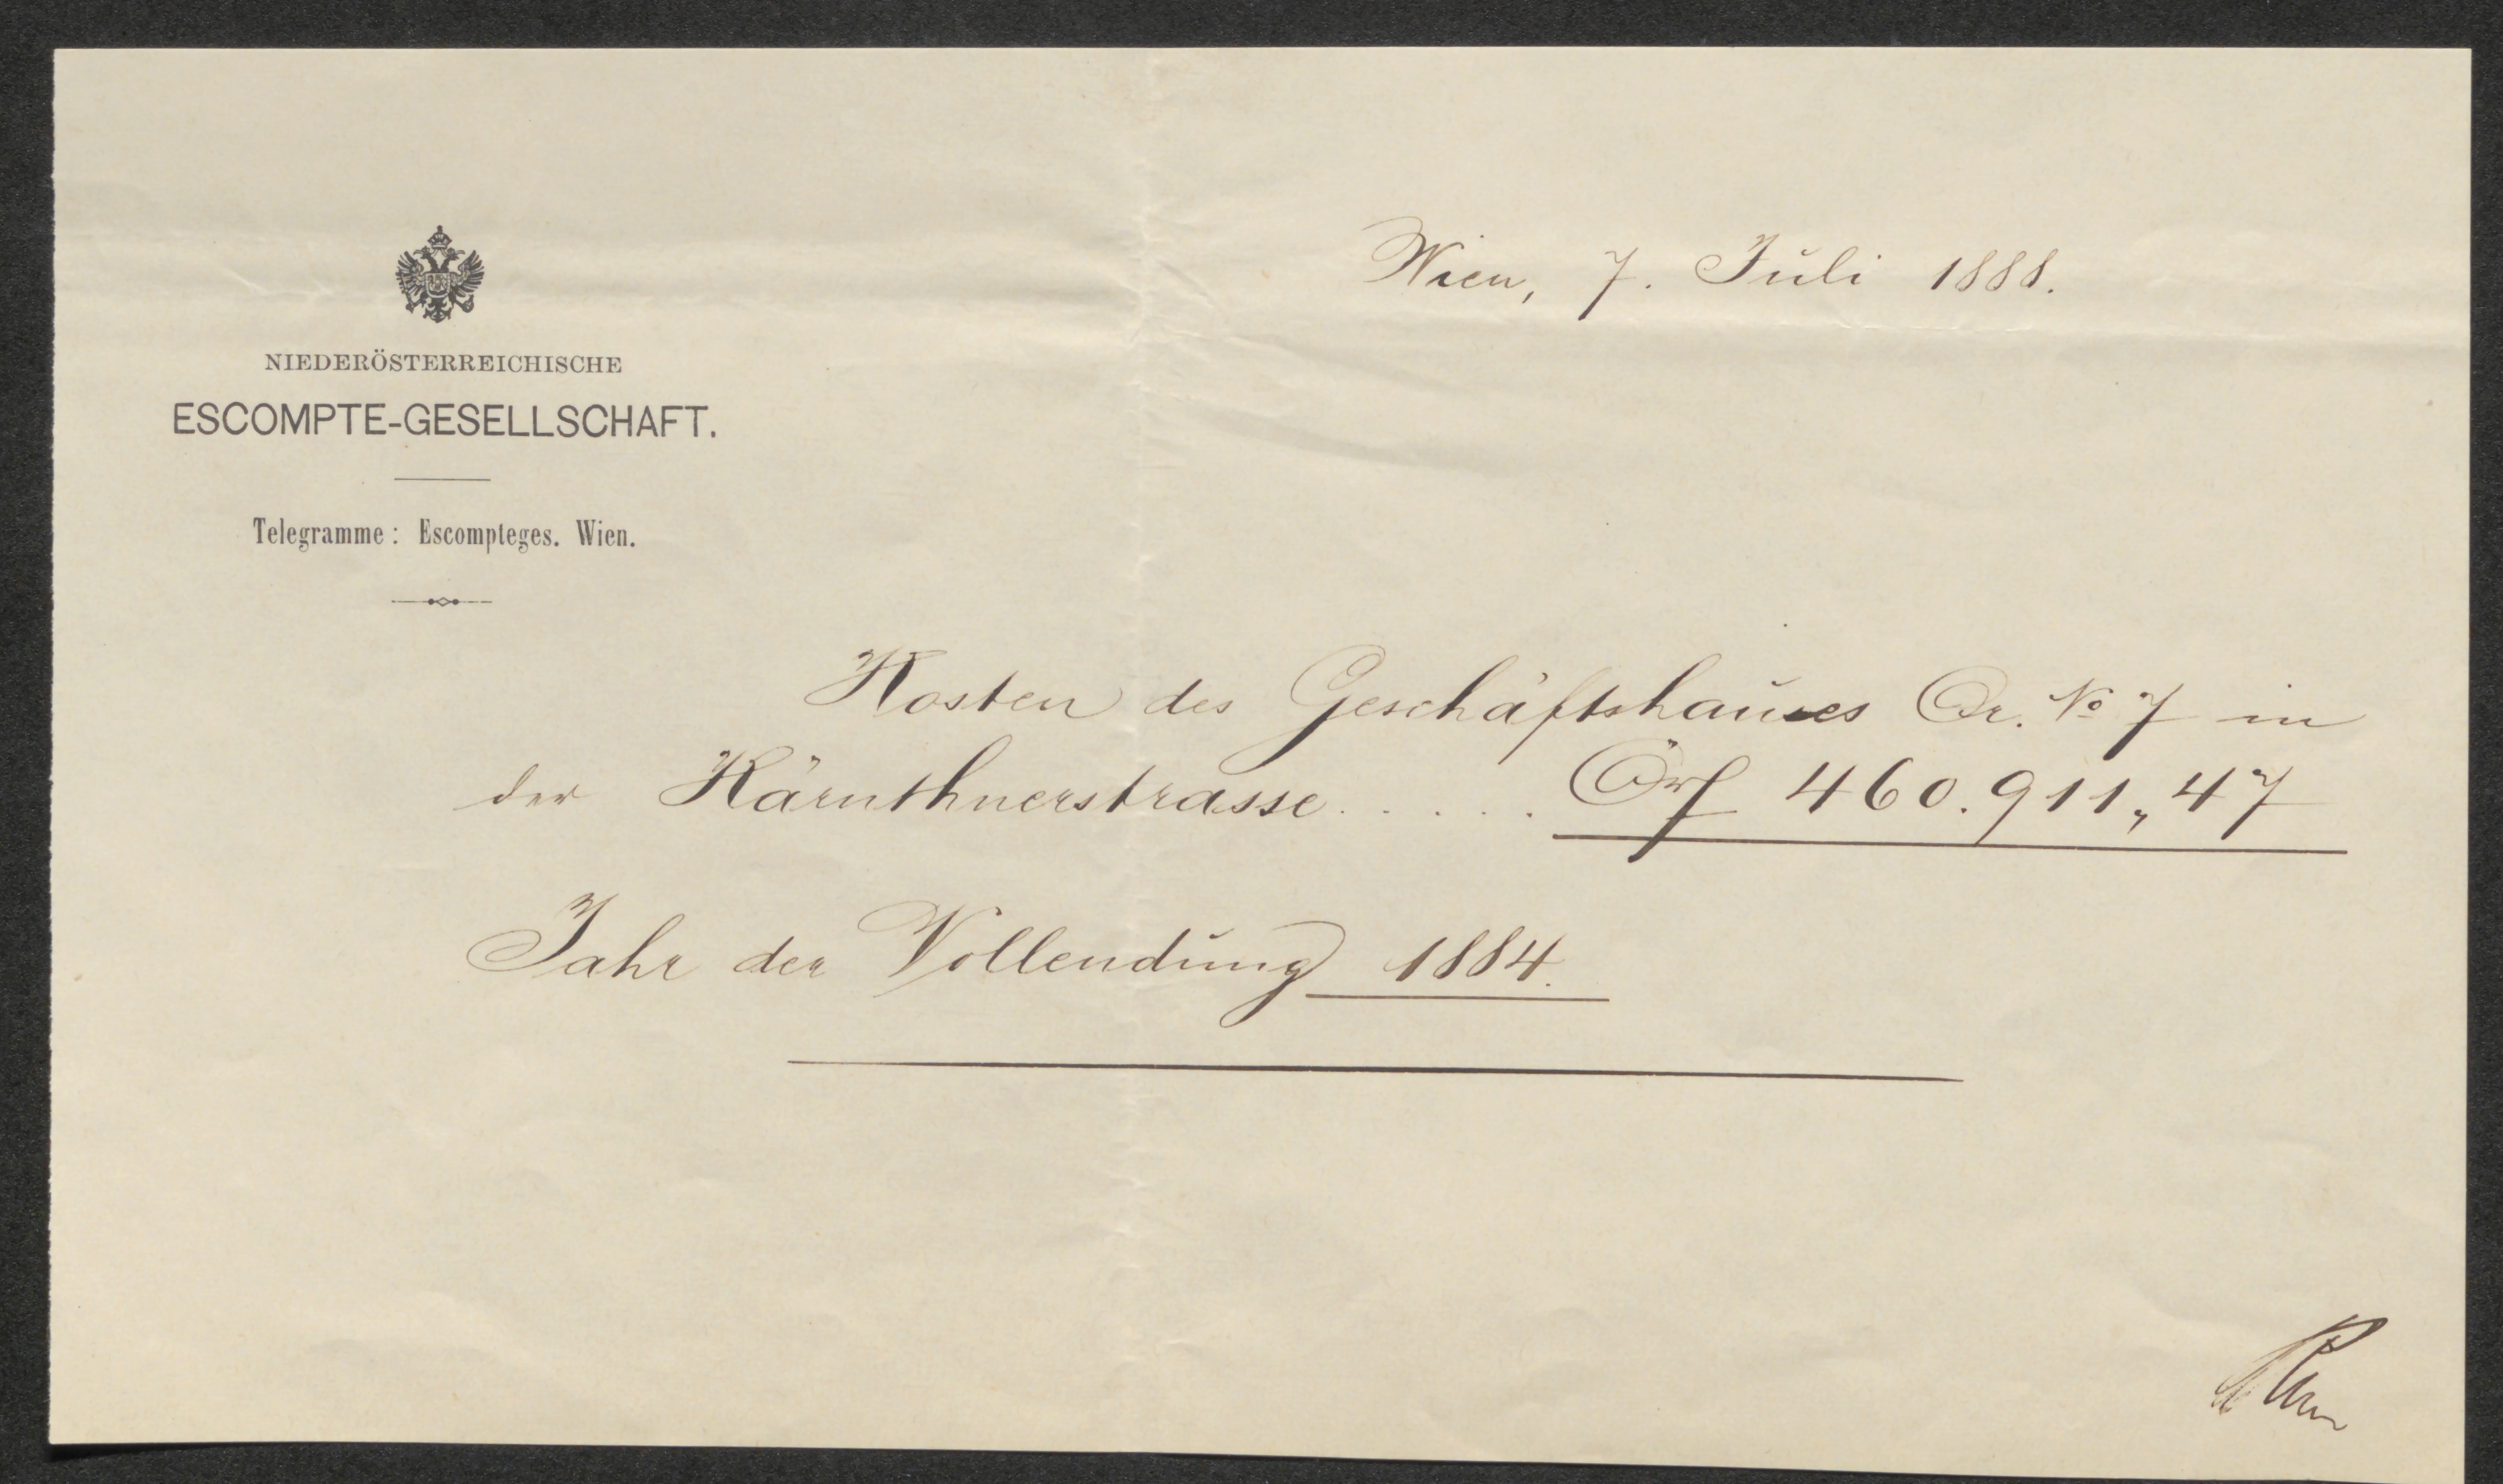 Wien, 7. Juli 1888.
NIEDERÖSTERREICHISCHE
ESCOMPTE-GESELLSCHAFT.
Telegramme: Escompteges. Wien.
Kosten des Geschäftshauses Or. No 7 in
der Kärnthnerstrasse . . . . . Öwf 460.911,47
Jahr der Vollendung 1884.